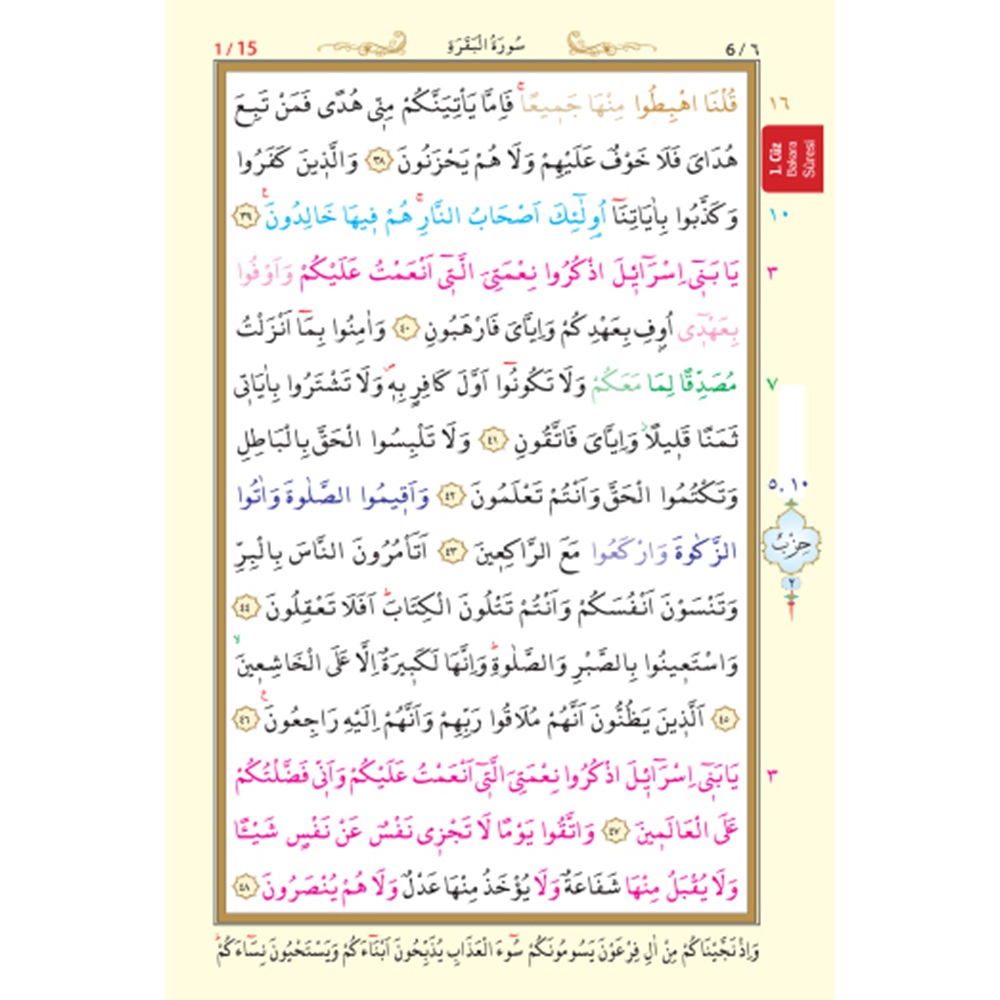 1 / 15
سُورَةُ الْبَقَرَةِ
6 / ٦
قُلْنَا اهْبِطُوا مِنْهَا جَمٖيعًاۚ فَاِمَّا يَأْتِيَنَّكُمْ مِنّٖى هُدًى فَمَنْ تَبِعَ
١٦
هُدَاىَ فَلَا خَوْفٌ عَلَيْهِمْ وَلَا هُمْ يَحْزَنُونَ ﴿٣٨﴾ وَالَّذٖينَ كَفَرُوا
1. Cüz
Bakara
Sûresi
وَكَذَّبُوا بِاٰيَاتِنَٓا اُو۬لٰٓئِكَ اَصْحَابُ النَّارِۚ هُمْ فٖيهَا خَالِدُونَۚ ﴿٣٩﴾
١٠
يَا بَنٖٓى اِسْرَٓائٖلَ اذْكُرُوا نِعْمَتِىَ الَّتٖٓى اَنْعَمْتُ عَلَيْكُمْ وَاَوْفُوا
٣
بِعَهْدٖٓى اُو۫فِ بِعَهْدِكُمْ وَاِيَّاىَ فَارْهَبُونِ ﴿٤٠﴾ وَاٰمِنُوا بِمَٓا اَنْزَلْتُ
مُصَدِّقًا لِمَا مَعَكُمْ وَلَا تَكُونُٓوا اَوَّلَ كَافِرٍ بِهٖࣕ وَلَا تَشْتَرُوا بِاٰيَاتٖى
٧
ثَمَنًا قَلٖيلًاؗ وَاِيَّاىَ فَاتَّقُونِ ﴿٤١﴾ وَلَا تَلْبِسُوا الْحَقَّ بِالْبَاطِلِ
وَتَكْتُمُوا الْحَقَّ وَاَنْتُمْ تَعْلَمُونَ ﴿٤٢﴾ وَاَقٖيمُوا الصَّلٰوةَ وَاٰتُوا
٥،١٠
الزَّكٰوةَ وَارْكَعُوا مَعَ الرَّاكِعٖينَ ﴿٤٣﴾ اَتَأْمُرُونَ النَّاسَ بِالْبِرِّ
حِزْبٌ
٢
وَتَنْسَوْنَ اَنْفُسَكُمْ وَاَنْتُمْ تَتْلُونَ الْكِتَابَؕ اَفَلَا تَعْقِلُونَ ﴿٤٤﴾
وَاسْتَعٖينُوا بِالصَّبْرِ وَالصَّلٰوةِؕ وَاِنَّهَا لَكَبٖيرَةٌ اِلَّا عَلَى الْخَاشِعٖينَۙ
﴿٤٥﴾ اَلَّذٖينَ يَظُنُّونَ اَنَّهُمْ مُلَاقُوا رَبِّهِمْ وَاَنَّهُمْ اِلَيْهِ رَاجِعُونَۚ ﴿٤٦﴾
يَا بَنٖٓى اِسْرَٓائٖلَ اذْكُرُوا نِعْمَتِىَ الَّتٖٓى اَنْعَمْتُ عَلَيْكُمْ وَاَنّٖى فَضَّلْتُكُمْ
٣
عَلَى الْعَالَمٖينَ ﴿٤٧﴾ وَاتَّقُوا يَوْمًا لَا تَجْزٖى نَفْسٌ عَنْ نَفْسٍ شَيْـًٔا
وَلَا يُقْبَلُ مِنْهَا شَفَاعَةٌ وَلَا يُؤْخَذُ مِنْهَا عَدْلٌ وَلَا هُمْ يُنْصَرُونَ ﴿٤٨﴾
وَاِذْ نَجَّيْنَاكُمْ مِنْ اٰلِ فِرْعَوْنَ يَسُومُونَكُمْ سُٓوءَ الْعَذَابِ يُذَبِّحُونَ اَبْنَٓاءَكُمْ وَيَسْتَحْيُونَ نِسَٓاءَكُمْؕ